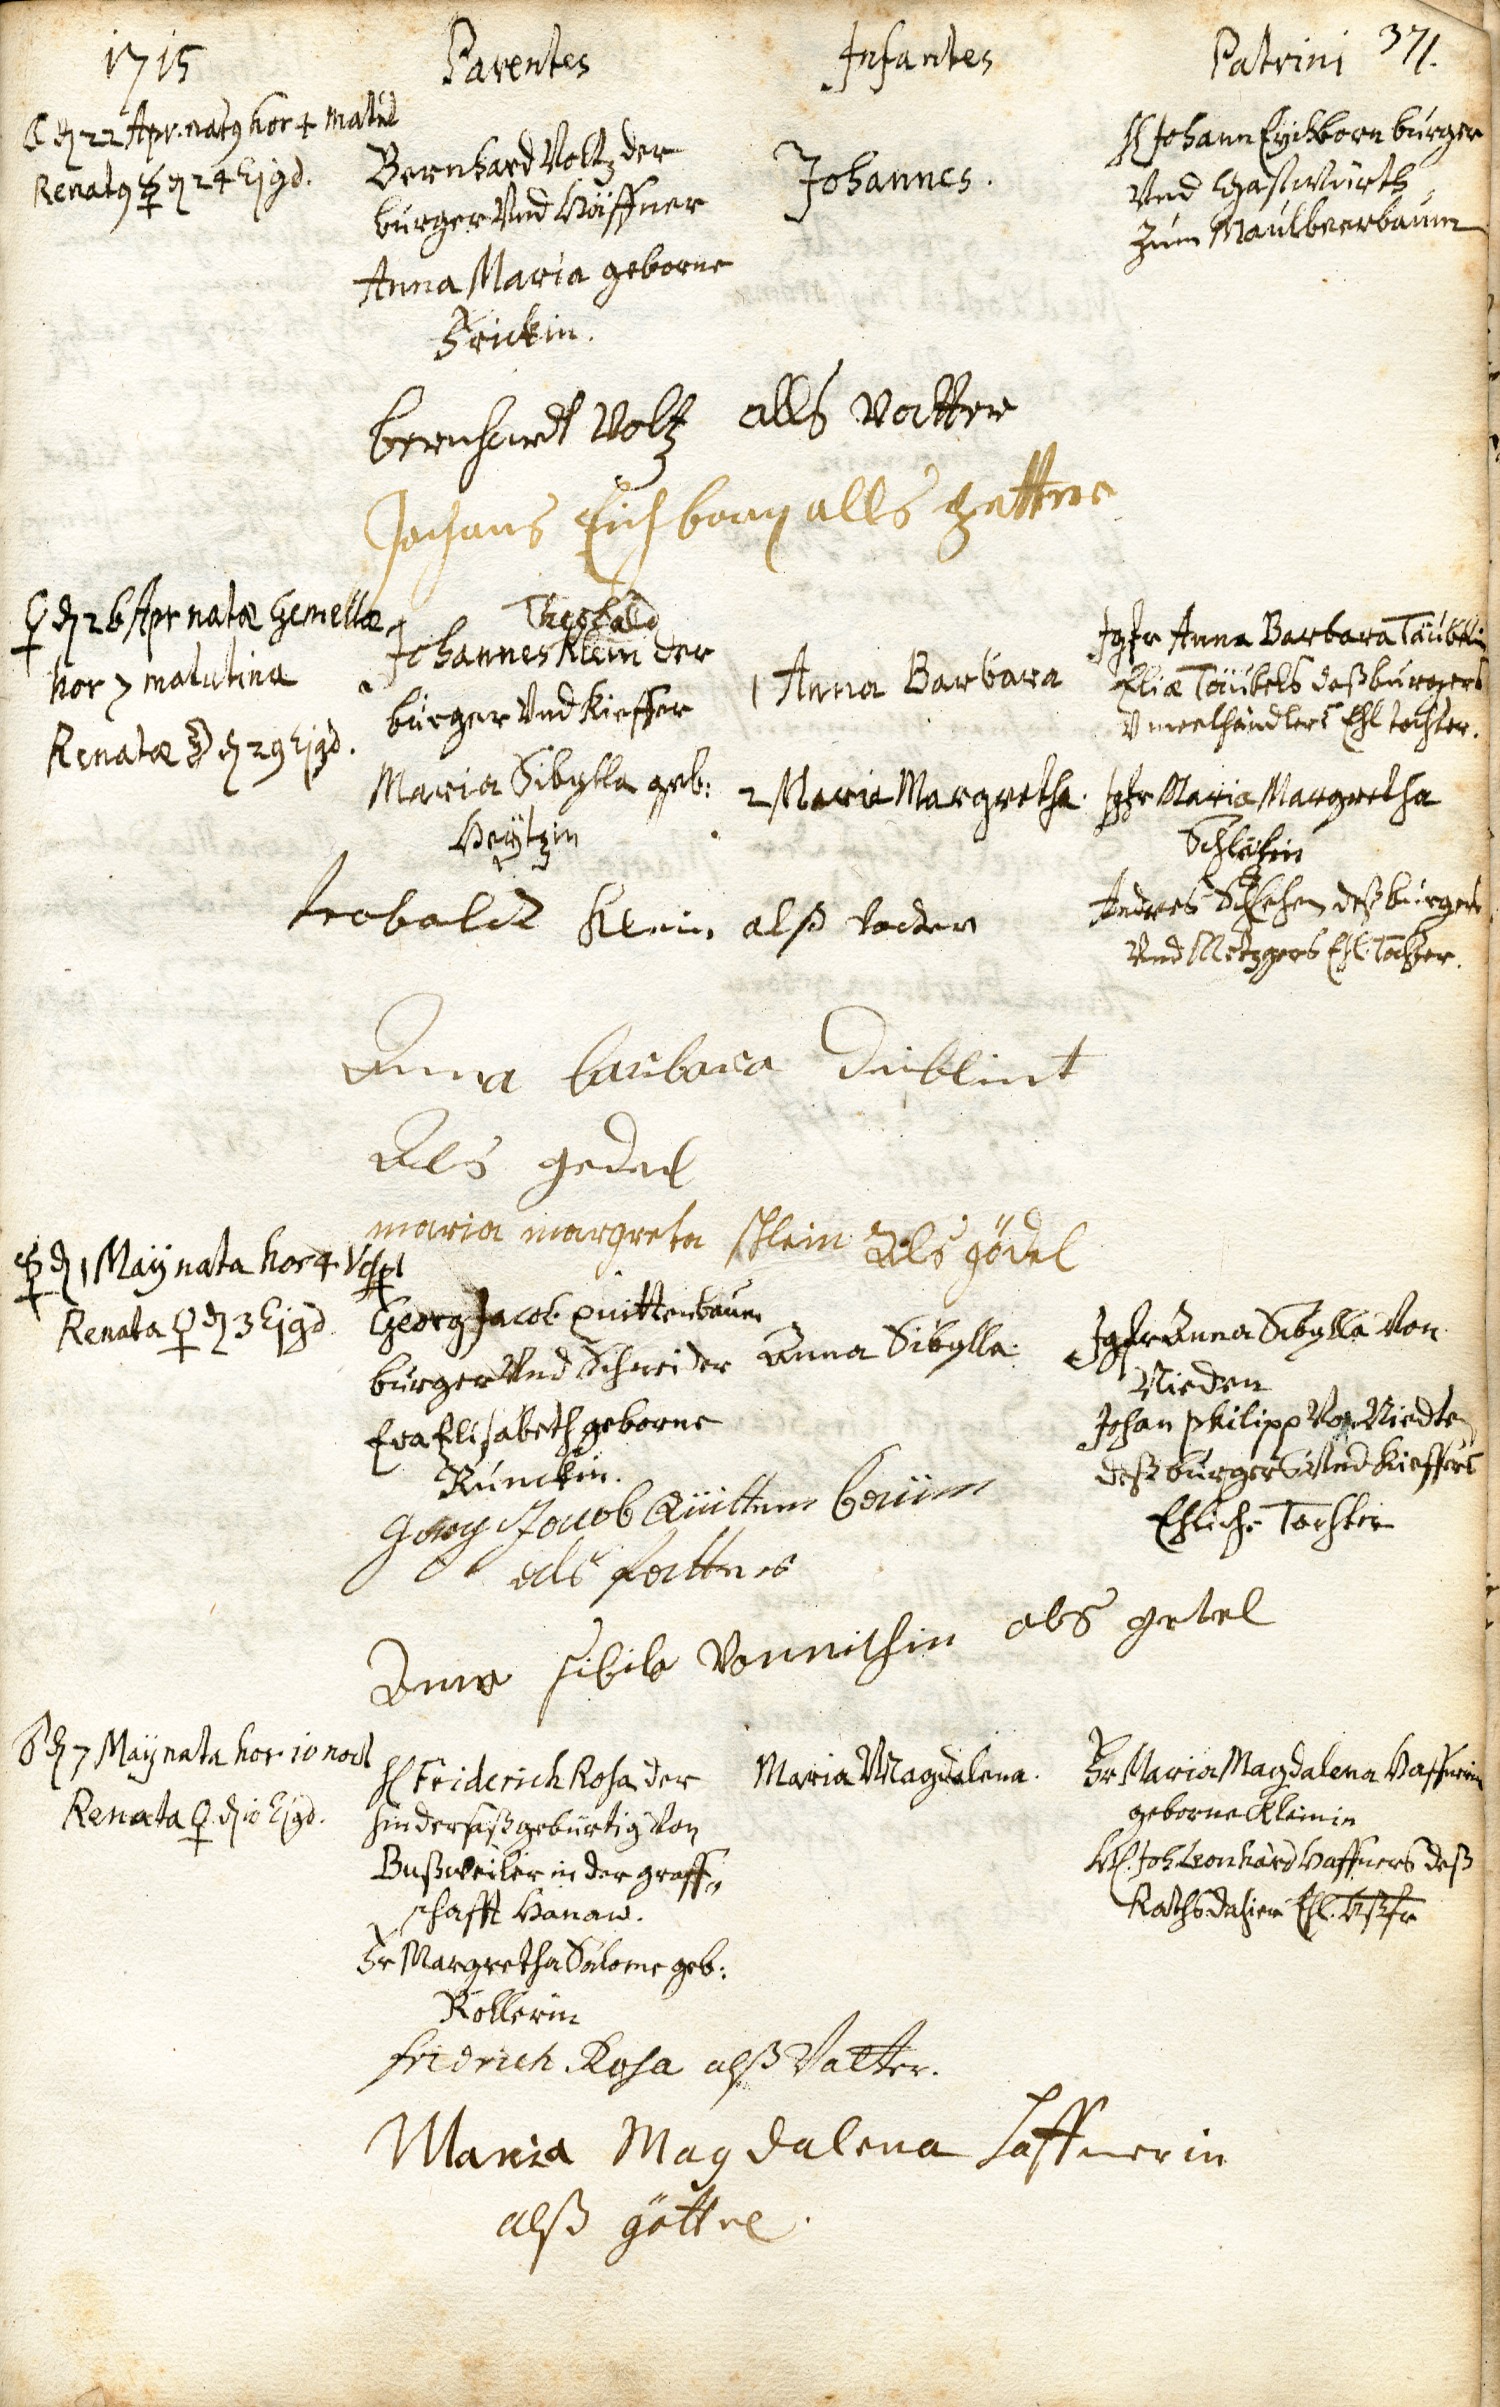 1715 Parentes Infantes Patrini 371.
☾ d 22 Apr. nat9 hor 4 matut
Renat9 ☿ d 24 Ejqd.
Bernhard Voltz der
burger Vnd Häffner
Anna Maria geborne
Frickin.
Johannes.
H Johann Eyckborn burger
Vnd Gastwürth
Zum Maulbeerbaum
bernhardt Voltz alls vatter
Johans Eichborn alls gettre
♀ d 26 Apr natæ Gemellæ
hor 7 matutina
Renatæ d 29 Ejqd.
Theobald
Johannes Klein der
burger Vnd Kieffer
Maria Sibylla geb:
Heÿtzin
1 Anna Barbara
2 Maria Margretha.
Jgfr Anna Barbara Täubelin
Eliæ Täubels deß burgers
V meelhändlers Ehl. tochter.
Jgfr Maria Margretha
Schlehin
Andres Schlehen deß burgers
Vnd Metzgers Ehl. Tochter.
teobald klein alß vader
Anna barbara Diblint
Als gedel
maria margreta schlein Als gödel
☿ d 1 Maÿ nata hor 4 Vesp
Renata ♀ d 3 Ejqd
Georg Jacob Quittenbaum
burger Vnd Schneider
Eva Elisabeth geborne
Runckin.
Anna Sibylla
Jgfr Anna Sibylla Von
Nieden
Johan Philipp Von Niedten
deß burgers Vnd Kieffers
Ehliche Tochter
Georg Jacob Quitten baum
als fatter
Anna sibila Vonnithin als getel
♂ d 7 Maÿ nata hor 10 noct
Renata ♀ d 10 Ejqd.
H Friderich Rosa der
hindersaß gebürtig Von
Bußweiler in der graff
schafft Hanaw.
Fr Margretha Salome geb:
Kollerin
Maria Magdalena.
Fr Maria Magdalena Haffnerin
geborne Kleinin
H. Joh Leonhard Haffners deß
Raths dahier Ehl. Hßfr
fridrich Rosa alß Vatter.
Maria Magdalena Haffnerin
alß göttel.